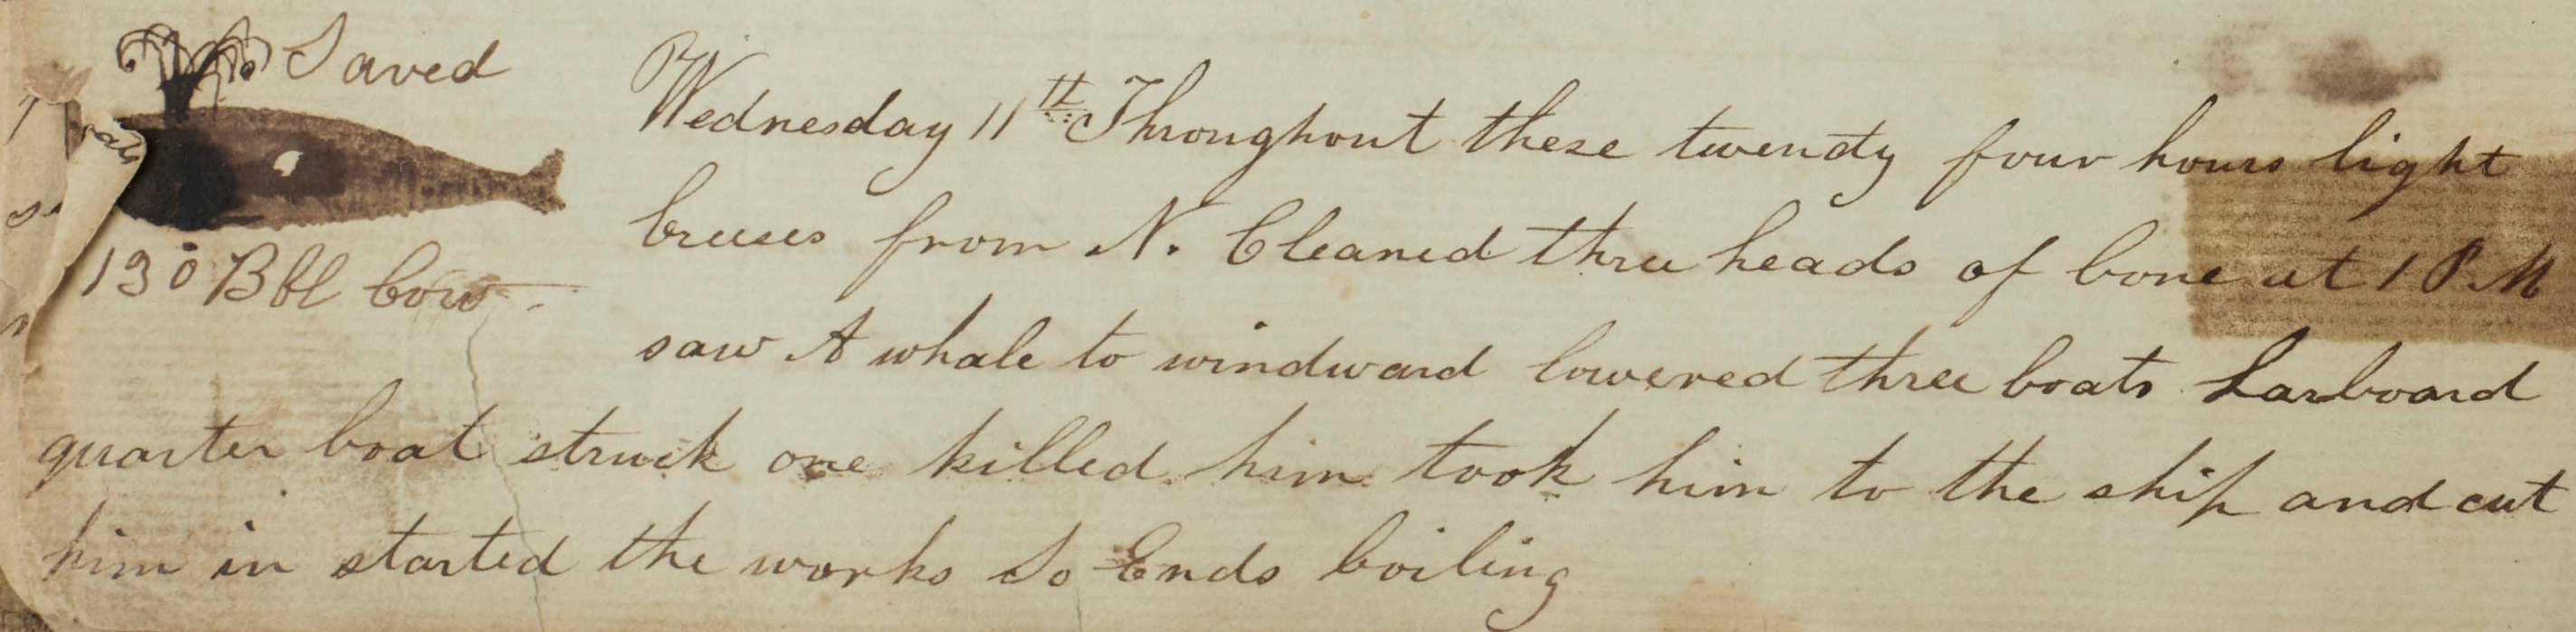 Saved
130 Bbl bow
Wednesday 11th Throughout these twendty four hours light
breeses from N. Cleaned three heads of bone at 1 P M
saw A whale to windward lowered three boats Larboard
quarter boat struck one killed him took him to the ship and cut
him in started the works So Ends boiling